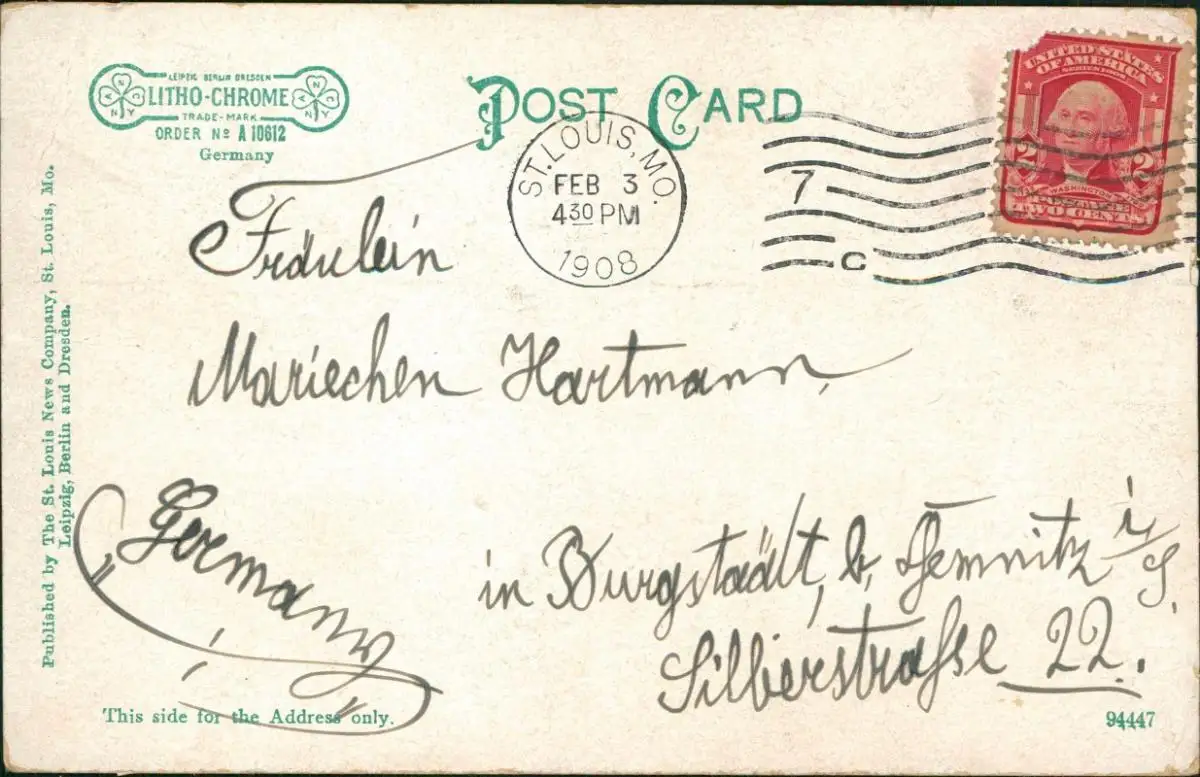 LEIPZIG BERLIN DRESDEN
LITHO-CHROME
N N Y
N N Y
TRADE-MARK
ORDER Nº A 10612
Germany
POST CARD
ST. LOUIS, MO.
FEB 3
4 30 PM
1908
7
C
UNITED STATES
OF AMERICA
SERIES 1902
2 2
WASHINGTON
POSTAGE
TWO CENTS
Published by The St. Louis News Company, St. Louis, Mo.
Leipzig, Berlin and Dresden.
Fräulein
Mariechen Hartmann,
Germany
in Burgstädt, b, Chemnitz i/S.
Silberstraße 22.
This side for the Address only.
94447